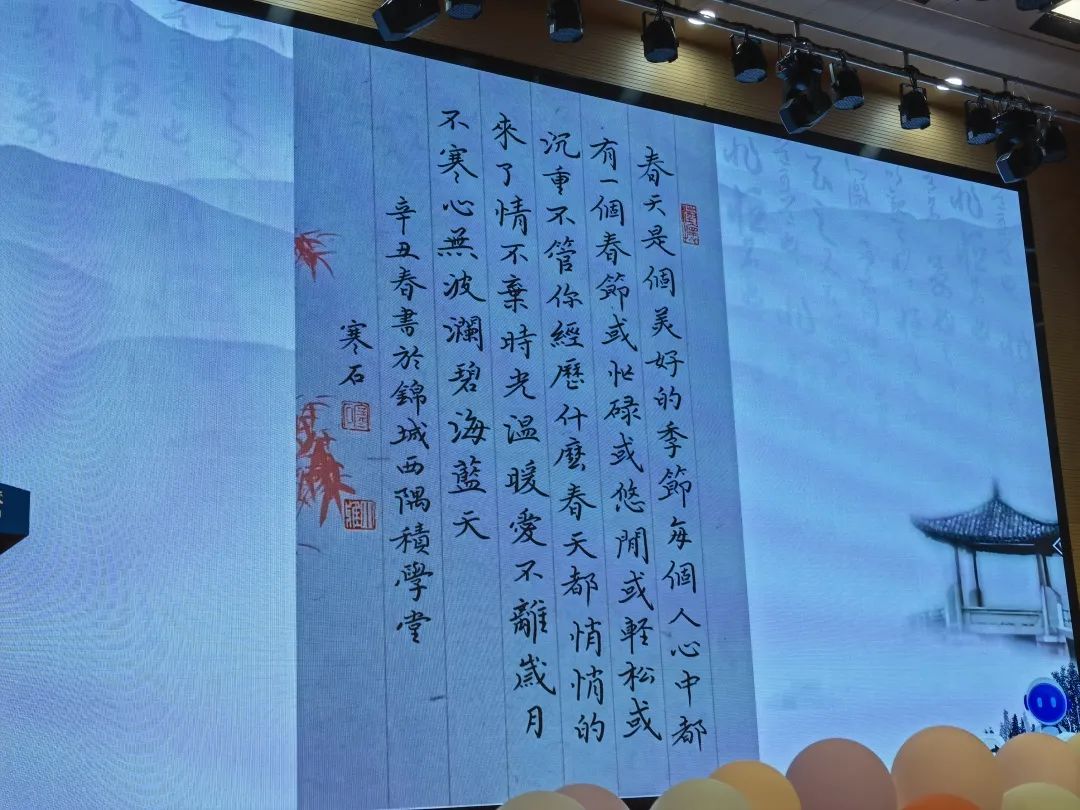 春天是個美好的季節每個人心中都
有一個春節或忙碌或悠閒或輕松或
沉重不管你經歷什麽春天都悄悄的
來了情不棄時光温暖愛不離歲月
不寒心無波瀾碧海藍天
辛丑春書於錦城西隅積學堂
寒石